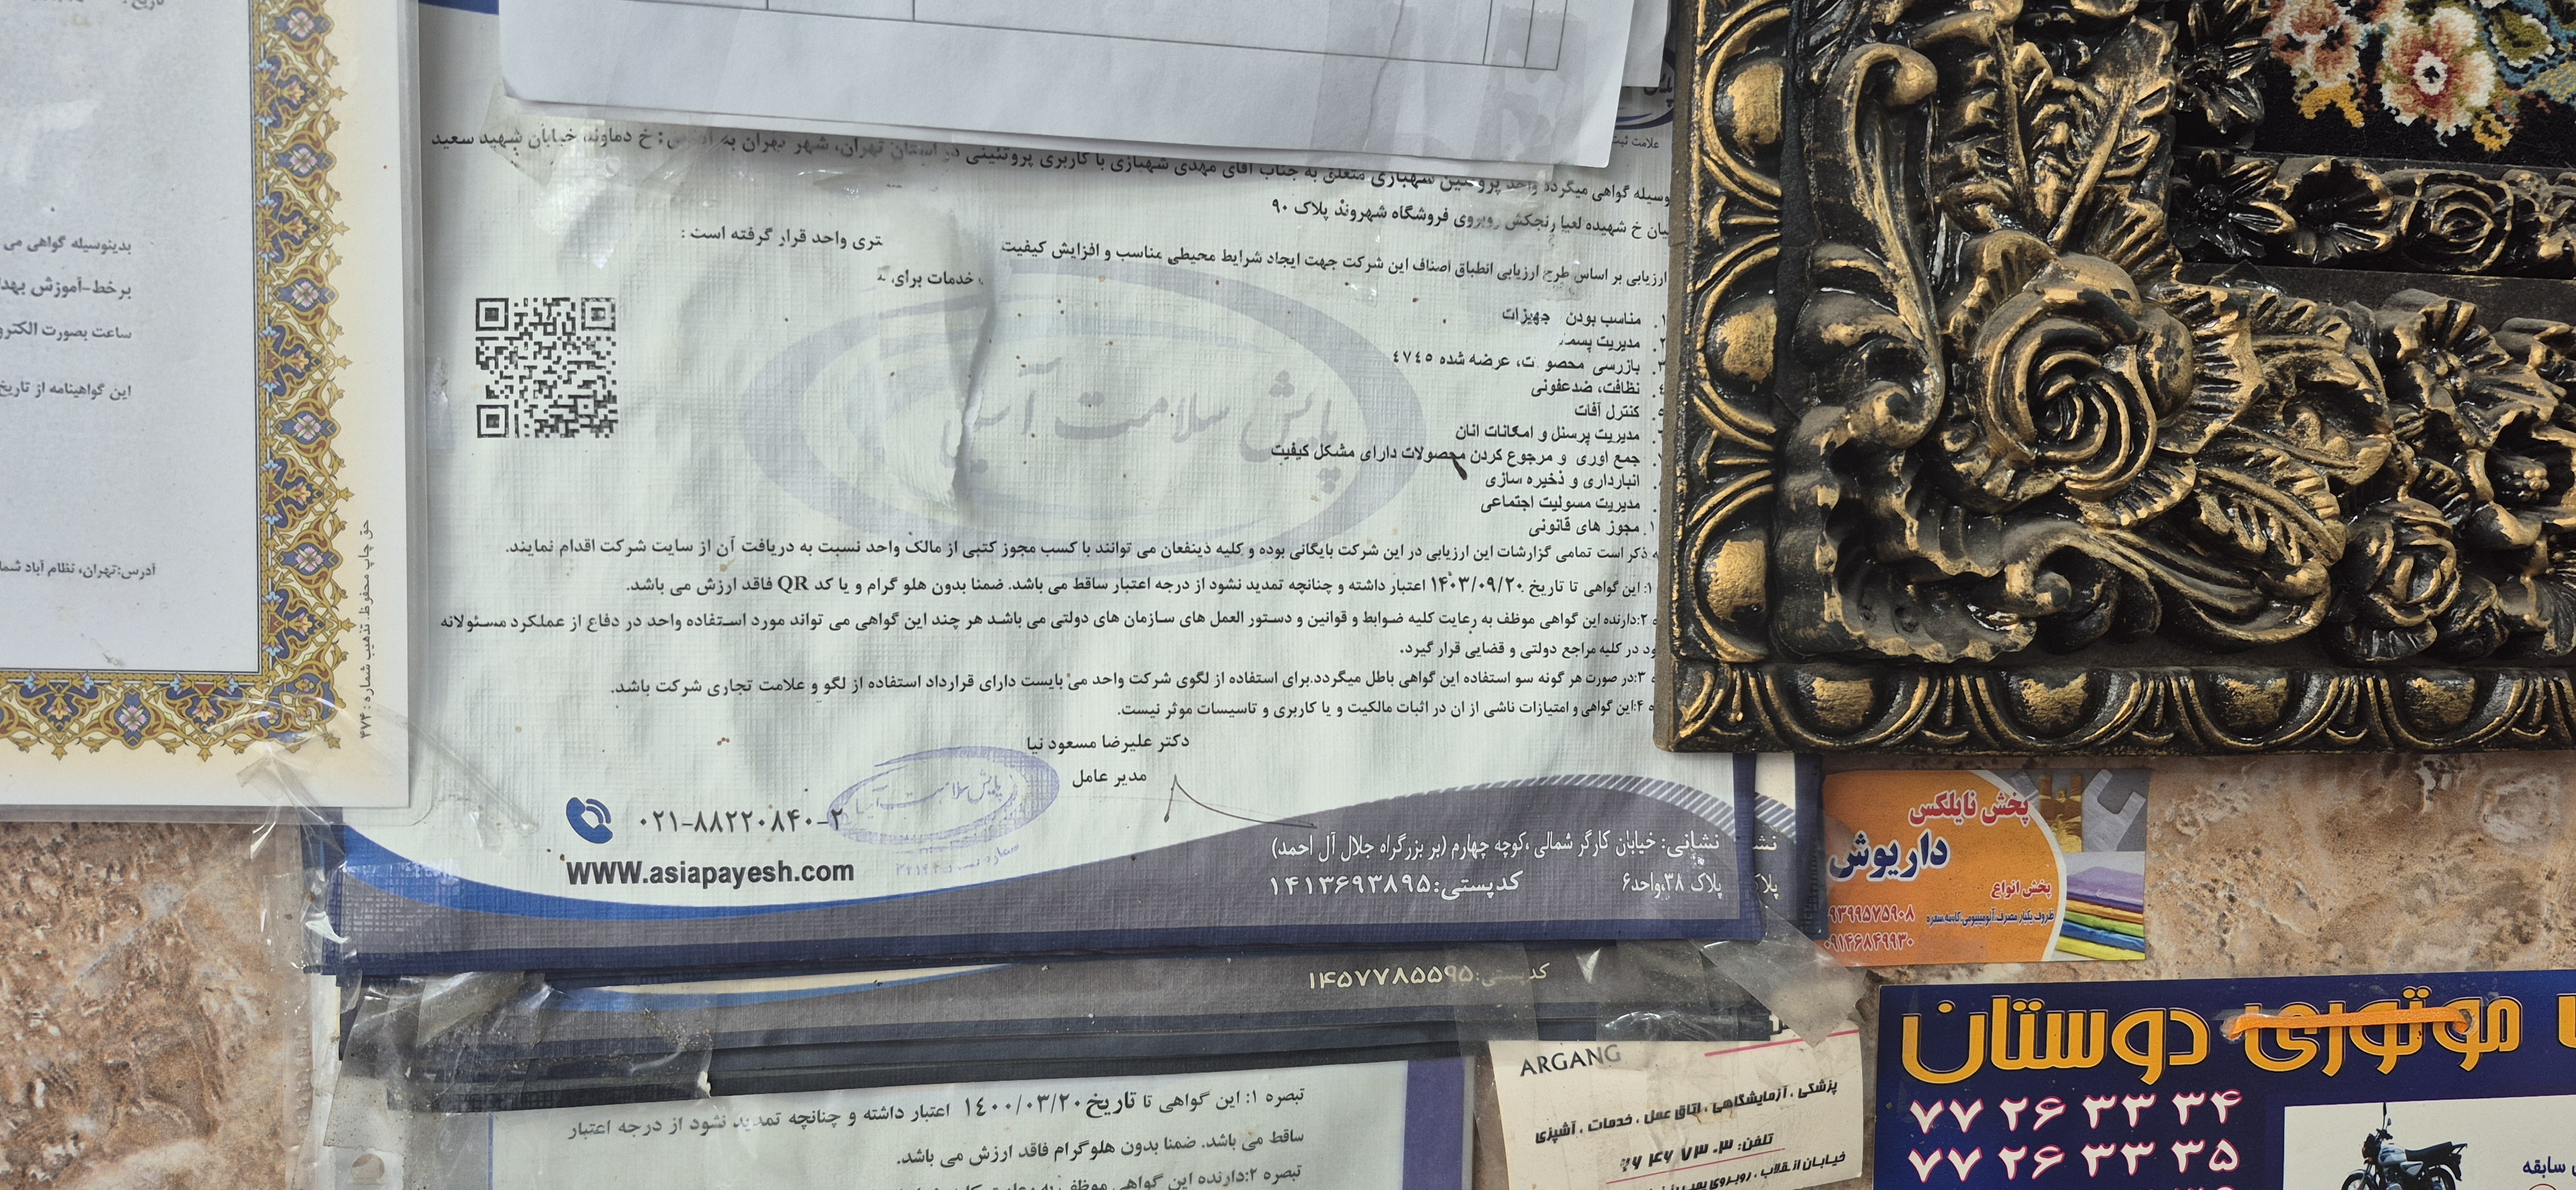 تاریخ :
بدینوسیله گواهی می
برخط-آموزش بهدا
ساعت بصورت الکترو
این گواهینامه از تاریخ
آدرس:تهران، نظام آباد شما
حق چاپ محفوظ، تذهیب شماره: ۴۷۴
علامت ثبت
وسیله گواهی میگردد واحد پروتئین شهبازی متعلق به جناب آقای مهدی شهبازی با کاربری پروتئینی در استان تهران، شهر تهران به آدرس: خ دماوند خیابان شهید سعید
یان خ شهیده لعیا رنجکش روبروی فروشگاه شهروند پلاک ۹۰
ارزیابی بر اساس طرح ارزیابی انطباق اصناف این شرکت جهت ایجاد شرایط محیطی مناسب و افزایش کیفیت
خدمات برای
تری واحد قرار گرفته است :
۱. مناسب بودن جهیزات
۲. مدیریت پسما
۳. بازرسی محصو ت، عرضه شده ٤٧٤٥
۴. نظافت، ضدعفونی
۵. کنترل آفات
مدیریت پرسنل و امکانات انان
جمع اوری و مرجوع کردن محصولات دارای مشکل کیفیت
انبارداری و ذخیره سازی
مدیریت مسولیت اجتماعی
۱. مجوز های قانونی
پایش سلامت آسیا
ه ذکر است تمامی گزارشات این ارزیابی در این شرکت بایگانی بوده و کلیه ذینفعان می توانند با کسب مجوز کتبی از مالک واحد نسبت به دریافت آن از سایت شرکت اقدام نمایند.
۱: این گواهی تا تاریخ ۱۴۰۳/۰۹/۲۰ اعتبار داشته و چنانچه تمدید نشود از درجه اعتبار ساقط می باشد. ضمنا بدون هلو گرام و یا کد QR فاقد ارزش می باشد.
ه ۲:دارنده این گواهی موظف به رعایت کلیه ضوابط و قوانین و دستور العمل های سازمان های دولتی می باشد هر چند این گواهی می تواند مورد استفاده واحد در دفاع از عملکرد مسئولانه
ود در کلیه مراجع دولتی و قضایی قرار گیرد.
ه ۳:در صورت هر گونه سو استفاده این گواهی باطل میگردد.برای استفاده از لگوی شرکت واحد می بایست دارای قرارداد استفاده از لگو و علامت تجاری شرکت باشد.
ه ۴:این گواهی و امتیازات ناشی از ان در اثبات مالکیت و یا کاربری و تاسیسات موثر نیست.
دکتر علیرضا مسعود نیا
مدیر عامل
پایش سلامت آسیا
۰۲۱-۸۸۲۲۰۸۴۰-۲
WWW.asiapayesh.com
نشانی: خیابان کارگر شمالی ،کوچه چهارم (بر بزرگراه جلال آل احمد)
پلاک ۳۸،واحد۶
کدپستی:۱۴۱۳۶۹۳۸۹۵
نش
پلاک
کدپستی:۱۴۵۷۷۸۵۵۹۵
تبصره ۱: این گواهی تا تاریخ ۱۴۰۰/۰۳/۲۰ اعتبار داشته و چنانچه تمدید نشود از درجه اعتبار
ساقط می باشد. ضمنا بدون هلوگرام فاقد ارزش می باشد.
تبصره ۲:دارنده این گواهی موظف به رعایت
پخش نایلکس
داریوش
پخش انواع
ظروف یکبار مصرف،آلومینیومی،کاسه،سفره
۰۹۳۹۹۵۷۵۹۰۸
۰۹۱۴۶۸۴۹۹۳۰
ARGANG
پزشکی ، آزمایشگاهی ، اتاق عمل ، خدمات ، آشپزی
تلفن: ۳۰ ۷۳ ۴۶ ۶۶
خیابان انقلاب ، روبروی
موتوری دوستان
۷۷ ۲۶ ۳۳ ۳۴
۷۷ ۲۶ ۳۳ ۳۵
سابقه